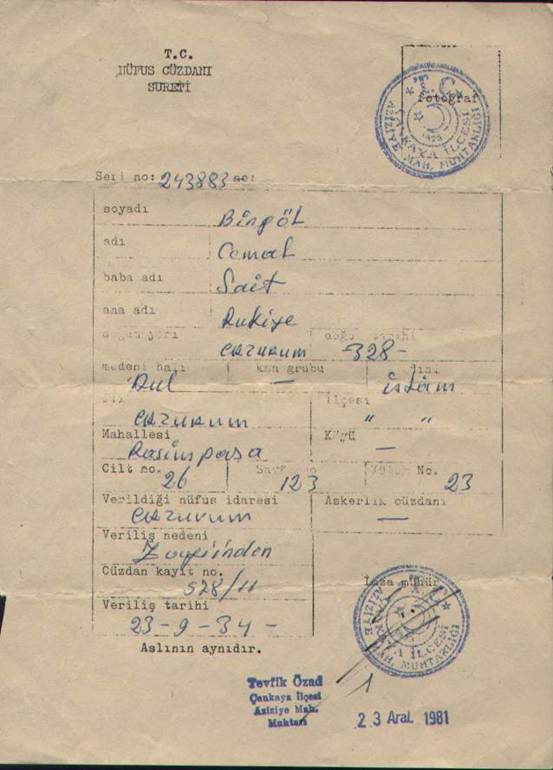 T.C.
NÜFUS CÜZDANI
SURETİ
fotoğraf
T.C.
ÇANKAYA İLÇESİ
AZİZİYE MAH. MUHTARLIĞI
Seri no: 243883 no:
soyadı Bingöl
adı Cemal
baba adı Sait
ana adı Rukiye
doğum yeri Erzurum doğum tarihi 328-
medeni hali Dul kan grubu — dini islam
ili Erzurum ilçesi " "
Mahallesi Rasimpaşa Köyü —
Cilt no. 26 Sayfa no 123 Kütük No. 23
Verildiği nüfus idaresi Erzurum Askerlik cüzdanı —
Veriliş nedeni Zayiinden
Cüzdan kayıt no. 528/11
Veriliş tarihi 23-9-34-
Aslının aynıdır.
İmza mühür
T.C.
ÇANKAYA İLÇESİ
AZİZİYE MAH. MUHTARLIĞI
Tevfik Özad
Çankaya İlçesi
Aziziye Mah.
Muhtarı
23 Aral. 1981